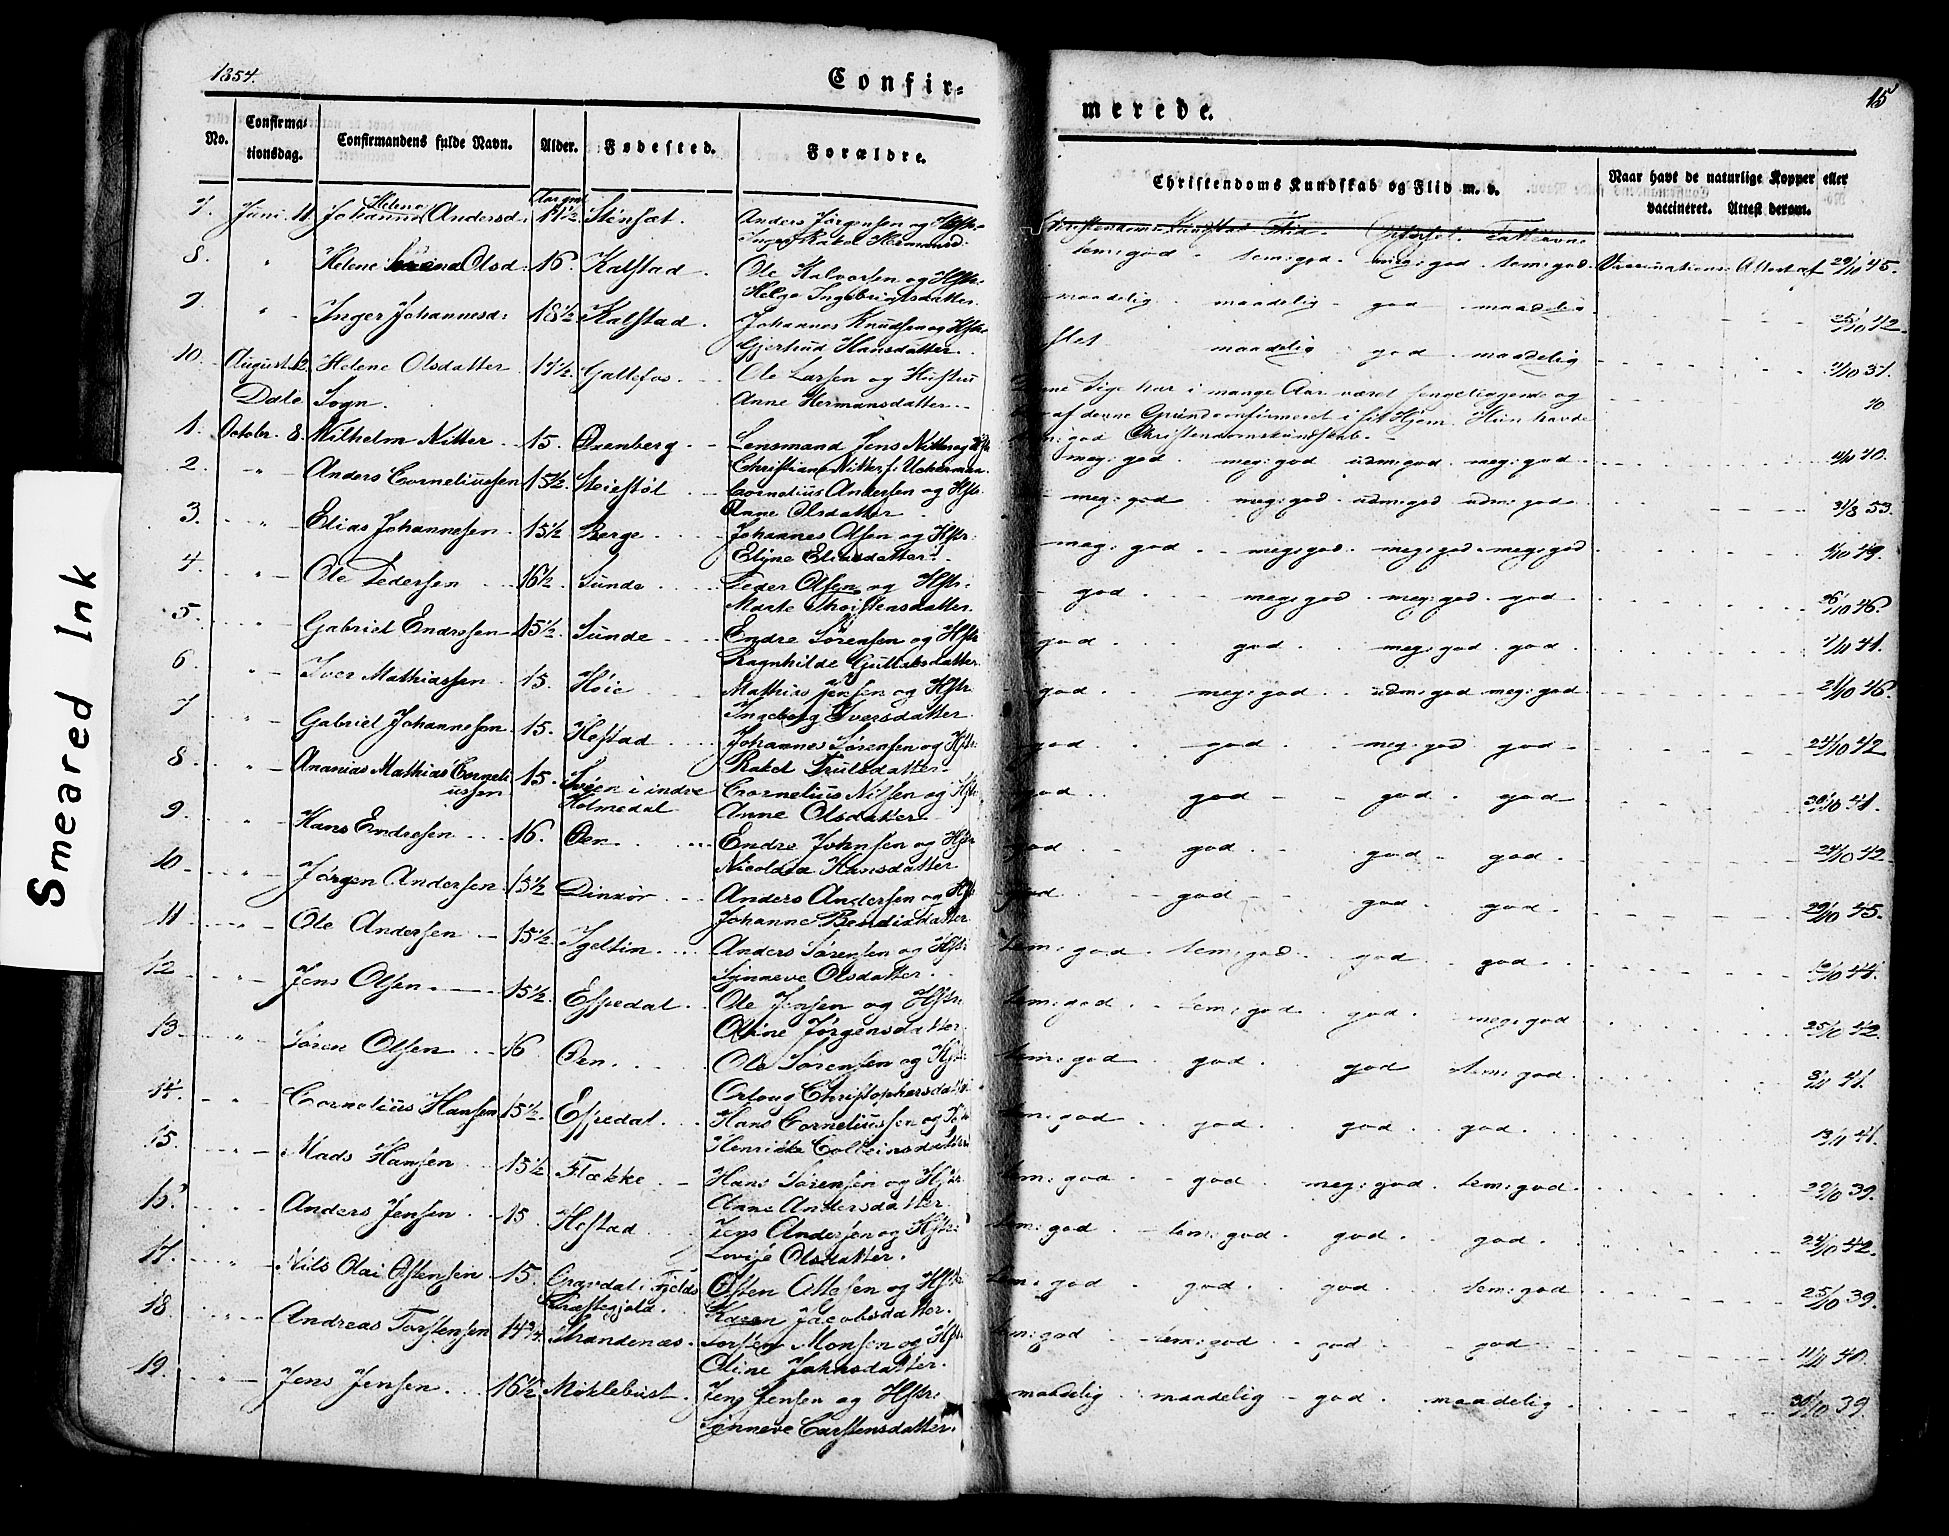 1854.
Confir=
merede.
15
No.
Confirma=
tionsdag.
Confirmandens fulde Navn.
Alder.
Fødested.
Forældre.
Christendoms Kundskab og Flid m. v.
Naar havt de naturlige Kopper eller
vaccineret. Attest derom.
7. Juni 11. Johanne Helene Andersd. Anders Jørgensen og Hstr.
8. " Helene Olsd: 16. Kalstad. Ole Halvorsen og Hstr.
Helga Ingebrigtsdatter.
tem: god. tem: god. meg: god tem: god. Vaccinations Attest af 29/10 45.
9. " Inger Johannesd: 18½ Kalstad. Johannes Knudsen og Hstr.
Gjertrud Hansdatter.
maadelig. maadelig god maadelig 25/10 42.
10. August 2. Helene Olsdatter 17½. Ole Larsen og Hustru
Anne Hermansdatter.
slet maadelig god maadelig 37.
Dale Sogn.
Pige har i mange Aar været sengeliggende og
af denne Grund confirmeret i sit Hjem. Hun havde
god Christendomskundskab.
1. Octobr. 8. Wilhelm Nitter 15. Oxenberg Lensmand Jens Nitter og Hstr
Christiane Nitter f. Uckerman
meg: god. meg: god udm: god. meg: god 40.
2. " Anders Corneliussen 15½. Steiestøl Cornelius Andersen og Hstr.
Anne Olsdatter
meg: god meg: god udm: god udm: god 31/8 53.
3. " Elias Johannesen 15½ Berge Johannes Olsen og Hstr:
Eliasdatter.
meg: god meg: god. meg: god meg: god 49.
4. " Ole Pedersen 16½. Sunde Peder Olsen og Hstr.
Marte Thorstensdatter.
god meg: god meg: god god 26/10 46.
5. " Gabriel Endresen 15½. Sunde Endre Sørensen og Hstr
Ragnhilde Guttabsdatter
god god meg: god god 41.
6. " Iver Mathiassen 15. Høie Mathias Jensen og Hstr
Ingeborg Iversdatter
god. meg: god. udm: god meg: god 21/10 46.
7 " Gabriel Johannesen 15. Hestad Johannes Sørensen og Hstr:
Rakel Trulsdatter.
god god. meg: god god 24/10 42
8. " Ananias Mathias Corneli
ussen 15. Svoen i indre
Holmedal Cornelius Nilsen og Hstr
Anne Olsdatter
god god god god 41.
9. " Hans Endresen 16. Øen. Endre Johnsen og Hstr
Nicolaia Hansdatter
god god. god god. 24/10 42
10 " Jørgen Andersen 15½ Dinxør Anders Andersen og Hstr
Johanne Bendixdatter
god god god god. 29/10 45.
11 " Ole Andersen 15½. Igeltin Anders Sørensen og Hstr
Synneve Olsdatter.
tem: god tem: god. god god. 44.
12 " Jens Olsen 15½. Espedal Ole Jensen og Hstr.
Oline Jørgensdatter
tem: god. tem: god god. meg: god 25/10 42.
13. " Søren Olsen 16 Øen. Ole Sørensen og Hstr.
Christophersdatter
tem: god god. god tem: god. 41.
14. " Cornelius Hansen 15½. Espedal. Hans Corneliussen og Hstr
Henrikke
tem: god god. god god. 13/11 41.
15. " Mads Hansen 15½ Flække Hans Sørensen og Hstr.
Anne Andersdatter
tem: god god. meg: god tem: god. 29/10 39.
16. " Anders Jensen 15. Hestad Jens Andersen og Hstr:
Lovise Olsdatter.
tem: god tem: god. god. god. 24/10 42.
17. " Nils Olai Østensen 15. Gravdal i Fjelds
Præstegjeld. Østen Attesen og Hstr
Karen Jacobsdatter.
tem: god god. god tem: god 25/10 39.
18. " Andreas Torstensen 14¾. Strandenæs. Torsten Monsen og Hstr
Oline Johnsdatter.
tem: god tem: god god god 11/11 40.
19. " Jens Jensen 16½ Møklebust. Jens Jensen og Hstr:
Synneve Carstensdatter.
maadelig maadelig god maadelig. 39.
Smeared Ink